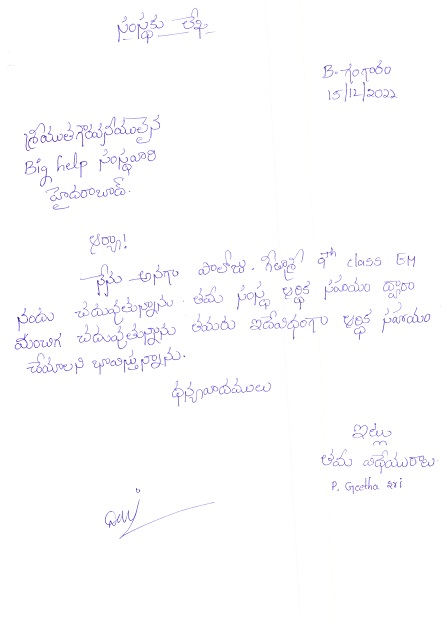 సంస్థకు లేఖ
B-గంగారం
15/12/2022
శ్రీయుత గౌరవనీయులైన
Big help సంస్థవారి
హైదరాబాద్.
ఆర్యా!
నేను అనగా పాలోజు. గీతాశ్రీ 9th class EM
నందు చదువుతున్నాను. తమ సంస్థ ఆర్థిక సహయం ద్వారా
మంచిగ చదువుతున్నాను తమరు ఇదేవిధంగా ఆర్థిక సహాయం
చేయాలని భావిస్తున్నాను.
ధన్యవాదములు
ఇట్లు
తమ విధేయురాలు.
P. Geetha sri